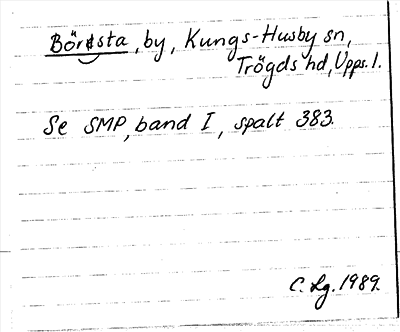 Börsta, by, Kungs-Husby sn,
Trögds hd, Upps. l.
Se SMP, band I, spalt 383.
C. Lg. 1989.